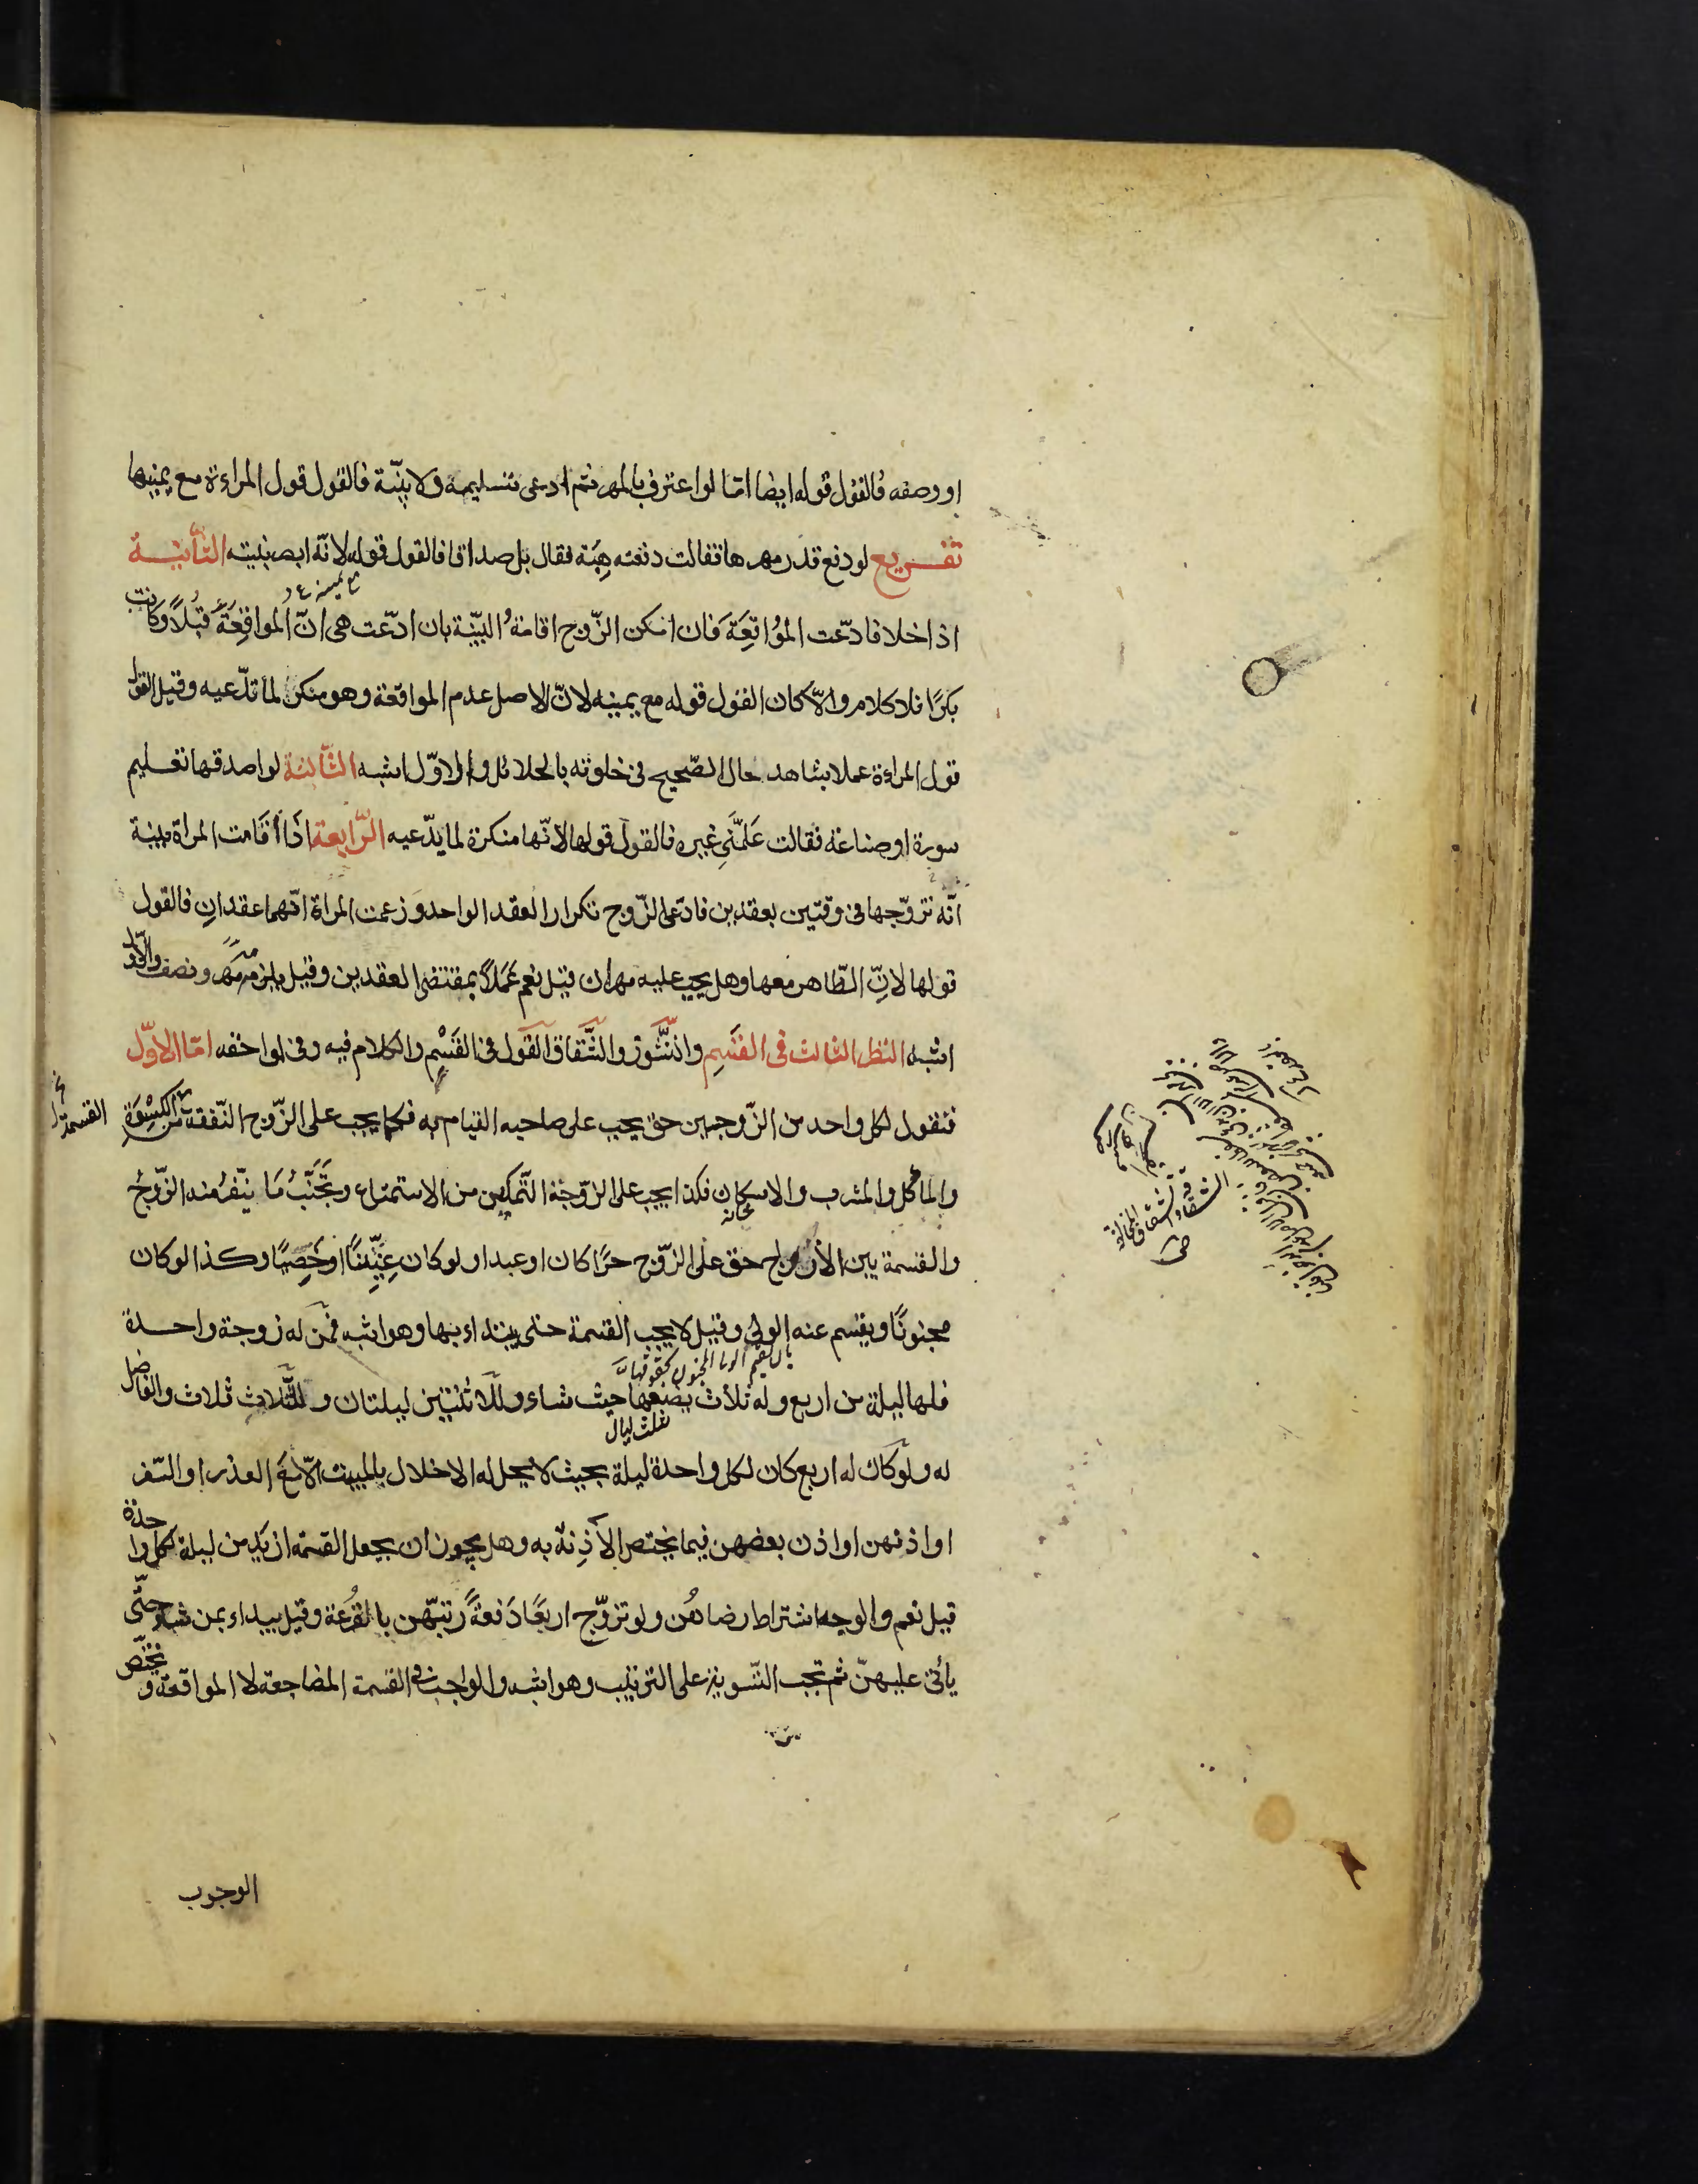 او وصفه فالقول قوله ايضا امّا لو اعترف بالمهر ثم ادعى تسليمه ولا بيّنة فالقول قول المراءة مع يمينها
تفريع لو دفع قدر مهرها فقالت دفعته هِبَة فقال بل صداقا فالقول قوله لانّه ابصر بنيته الثانية
مع يمينه
اذا خلا فادّعت المُواقعَةَ فان امكن الزّوج اقامةُ البيّنة بان ادّعت هى انّ المواقعةَ قُبُلًا وكانت
بكرًا فلا كلام والّا كان القول قوله مع يمينه لانّ الاصل عدم المواقعة وهو منكر لما تدّعيه وقيل القول
قول المراءة عملا بشاهد حال الصّحيح فى خلوته بالحلائل والاوّل اشبه الثّالثة لو اصدقها تعليم
سورة او صناعة فقالت عَلَّمَنِى غيره فالقول قولها لانّها منكرة لما يدّعيه الرّابعة اذَا أقَامت المراة بينة
انّه تزوّجها فى وقتين بعقدين فادّعى الزّوج تكرار العقد الواحد وزعمت المراة انّهما عقدان فالقول
قولها لانّ الظّاهر معها وهل يجب عليه مهران قيل نعم عَمَلًا بمقتضى العقدين وقيل يلزمه مَهر ونصف والاوّل
اشبه النظر الثالث فى القَسْمِ والنُّشُوز والشّقاق القَول فى القَسْمِ والكلام فيه وفى لواحقه امّا الاوّل
فنقول لكل واحد من الزّوجين حق يجب على صاحبه القيام به فكما يجب على الزّوج النّفقة من الكِسْوَةِ
القسمة
والماكل والمشرب والاسكان فكذا يجب على الزّوجة التّمكين من الاستمتاع وتَجَنّبُ مَا يَنّفرُ منه الزّوجُ
والقسمة بين الأزواج حق على الزّوج حرّا كان او عبدا ولو كان عِنِّينًا اوخَصِيًا وكذا لو كان
مجنونًا ويقسم عنه الولىّ وقيل لا يجب القسمة حتى يبتداء بها وهو اشبه فمَن له زوجة واحدة
فلها ليلة من اربع وله ثلاث يضعها حيث شاء وللاثنتين ليلتان وللثّلاثِ ثلاث والفاضل
ثلث ليال
له ولو كان له اربع كان لكل واحدة ليلة بحيث لا يحل له الاخلال بالمبيت الّا مَعَ العذر او السّفر
او اذنهن او اذن بعضهن فيما يختص الآذِنة به وهل يجوز ان يجعل القسمة ازيَد من ليلة لكل واحدة
قيل نعم والوجه اشتراط رضاهُن ولو تزوّج اربعًا دَفعةً رتبّهن بالقُرعة وقيل يبداء بمن شاء حتّى
يأتى عليهنّ ثم تجب التّسوية على الترتيب وهو اشبه والواجب فى القسمة المضاجعة لا المواقعة ويختصّ
الوجوب